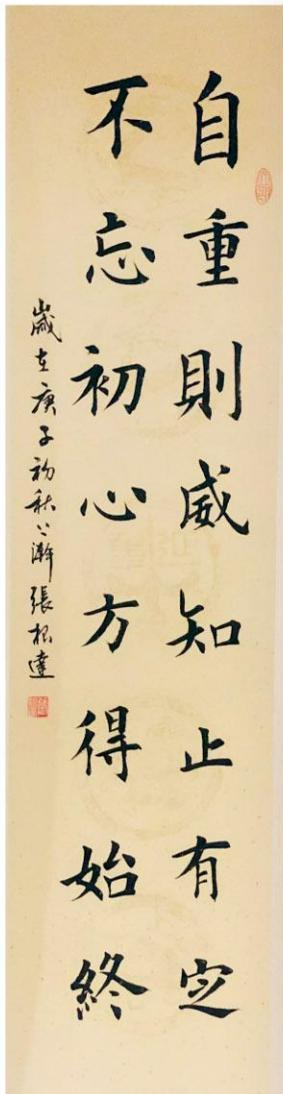 自重則威知止有定
不忘初心方得始終
歲在庚子初秋張根達